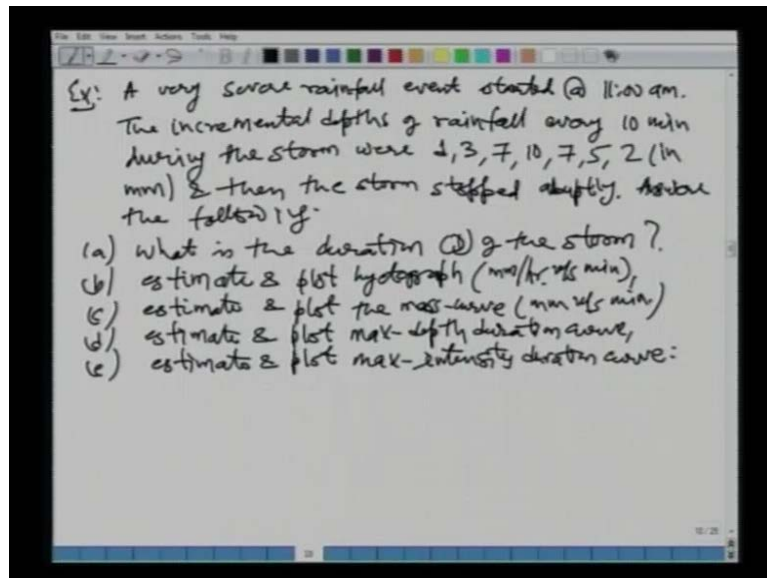 File Edit View Insert Actions Tools Help
Ex: A very severe rainfall event started @ 11:00 am.
The incremental depths of rainfall every 10 min
during the storm were 1, 3, 7, 10, 7, 5, 2 (in
mm) & then the storm stopped abruptly.
the
(a) What is the duration (D) of the storm?
(b) estimate & plot hyetograph (mm/hr. v/s min),
(c) estimate & plot the mass-curve (mm v/s min)
(d) estimate & plot max-depth duration curve,
(e) estimate & plot max-intensity duration curve: